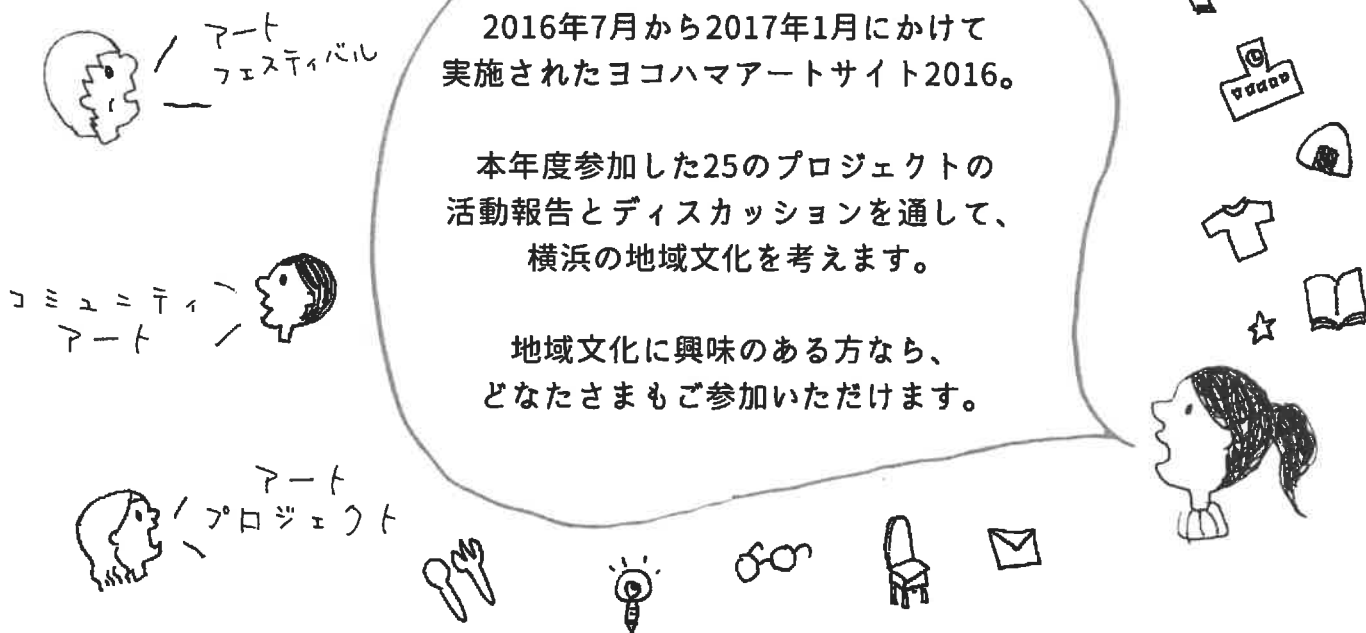 アート
フェスティバル
2016年7月から2017年1月にかけて
実施されたヨコハマアートサイト2016。
本年度参加した25のプロジェクトの
活動報告とディスカッションを通して、
横浜の地域文化を考えます。
地域文化に興味のある方なら、
どなたさまもご参加いただけます。
コミュニティ
アート
アート
プロジェクト